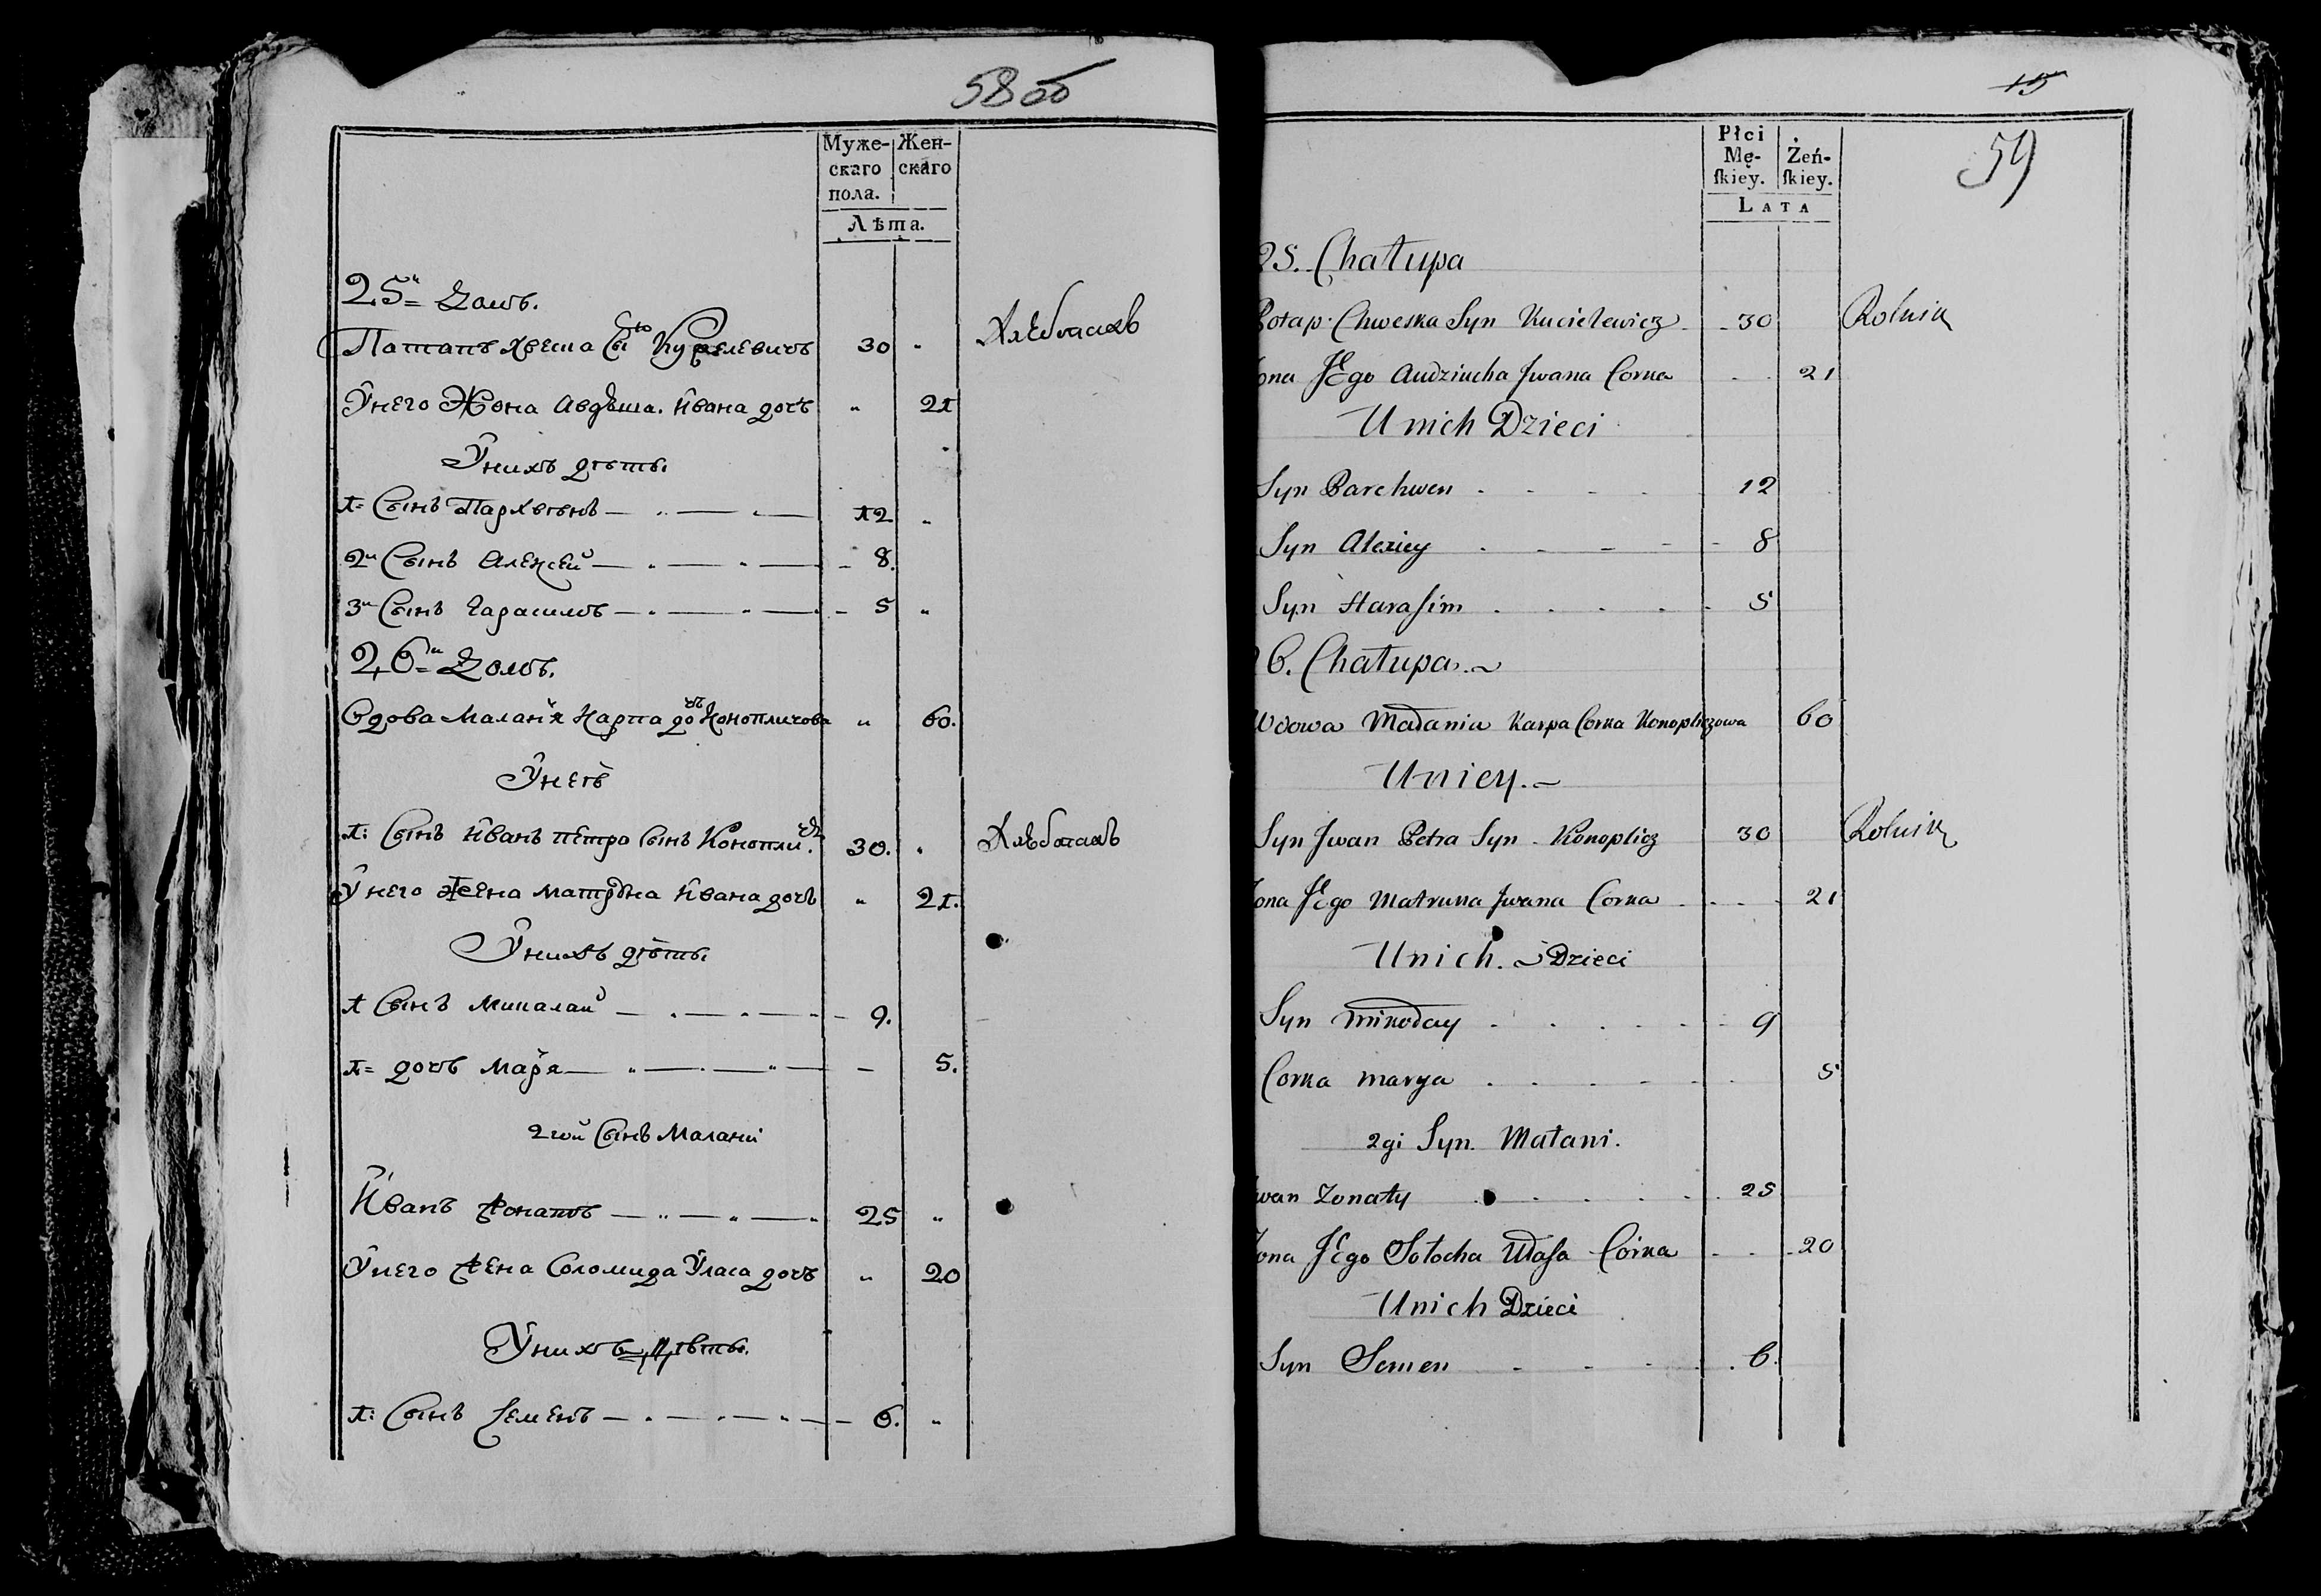 58 об
Муже- Жен-
скаго скаго
пола.
Лѣта.
25й Домъ.
Патапъ Хвеша Сынъ Куцелевичъ 30 "
Хлебопашѣ
Унего Жона Авдѣша Ивана дочъ " 21
Унихъ дѣты.
1= Сынъ Пархвѣнъ 12 "
2й Сынъ Алексей 8.
3й Сынъ Гарасимъ 5 "
26й Домъ.
Вдова Маланя Карпа дочъ Конопличова " 60.
Унеѣ
1: Сынъ Иванъ Петра Сынъ Конопличъ 30. "
Хлебопашѣ
Унего Жена Матруна Ивана дочъ " 21.
Унихъ дѣты.
1 Сынъ Микалай 9.
1= дочъ Маря 5.
2гой Сынъ Маланi
Иванъ Жонатъ 25 "
Унего Жена Соломида Уласа дочъ " 20
Унихъ Дѣты.
1: Сынъ Семенъ 6. "
15
59
Płci
Mę- Żeń-
ſkiey. ſkiey.
LATA
25. Chałupa
Potap Chweska Syn Kucielewicz 30 Rolnik
ona Jego Audziucha Jwana Corka 21
U nich Dzieci
Syn Parchwen 12
Syn Alexiey 8
Syn Harasim 5
6. Chałupa.
Wdowa Małania Karpa Corka Konopliczowa 60
Uniey.
Syn Jwan Petra Syn Konoplicz 30 Rolnik
ona Jego Matruna Jwana Corka 21
Unich. Dzieci
Syn Mikołay 9
Corka Marya 5
2gi Syn Małani.
wan Zonaty 25
ona Jego Sołocha Ułasa Corka 20
Unich Dzieci
Syn Semen 6.